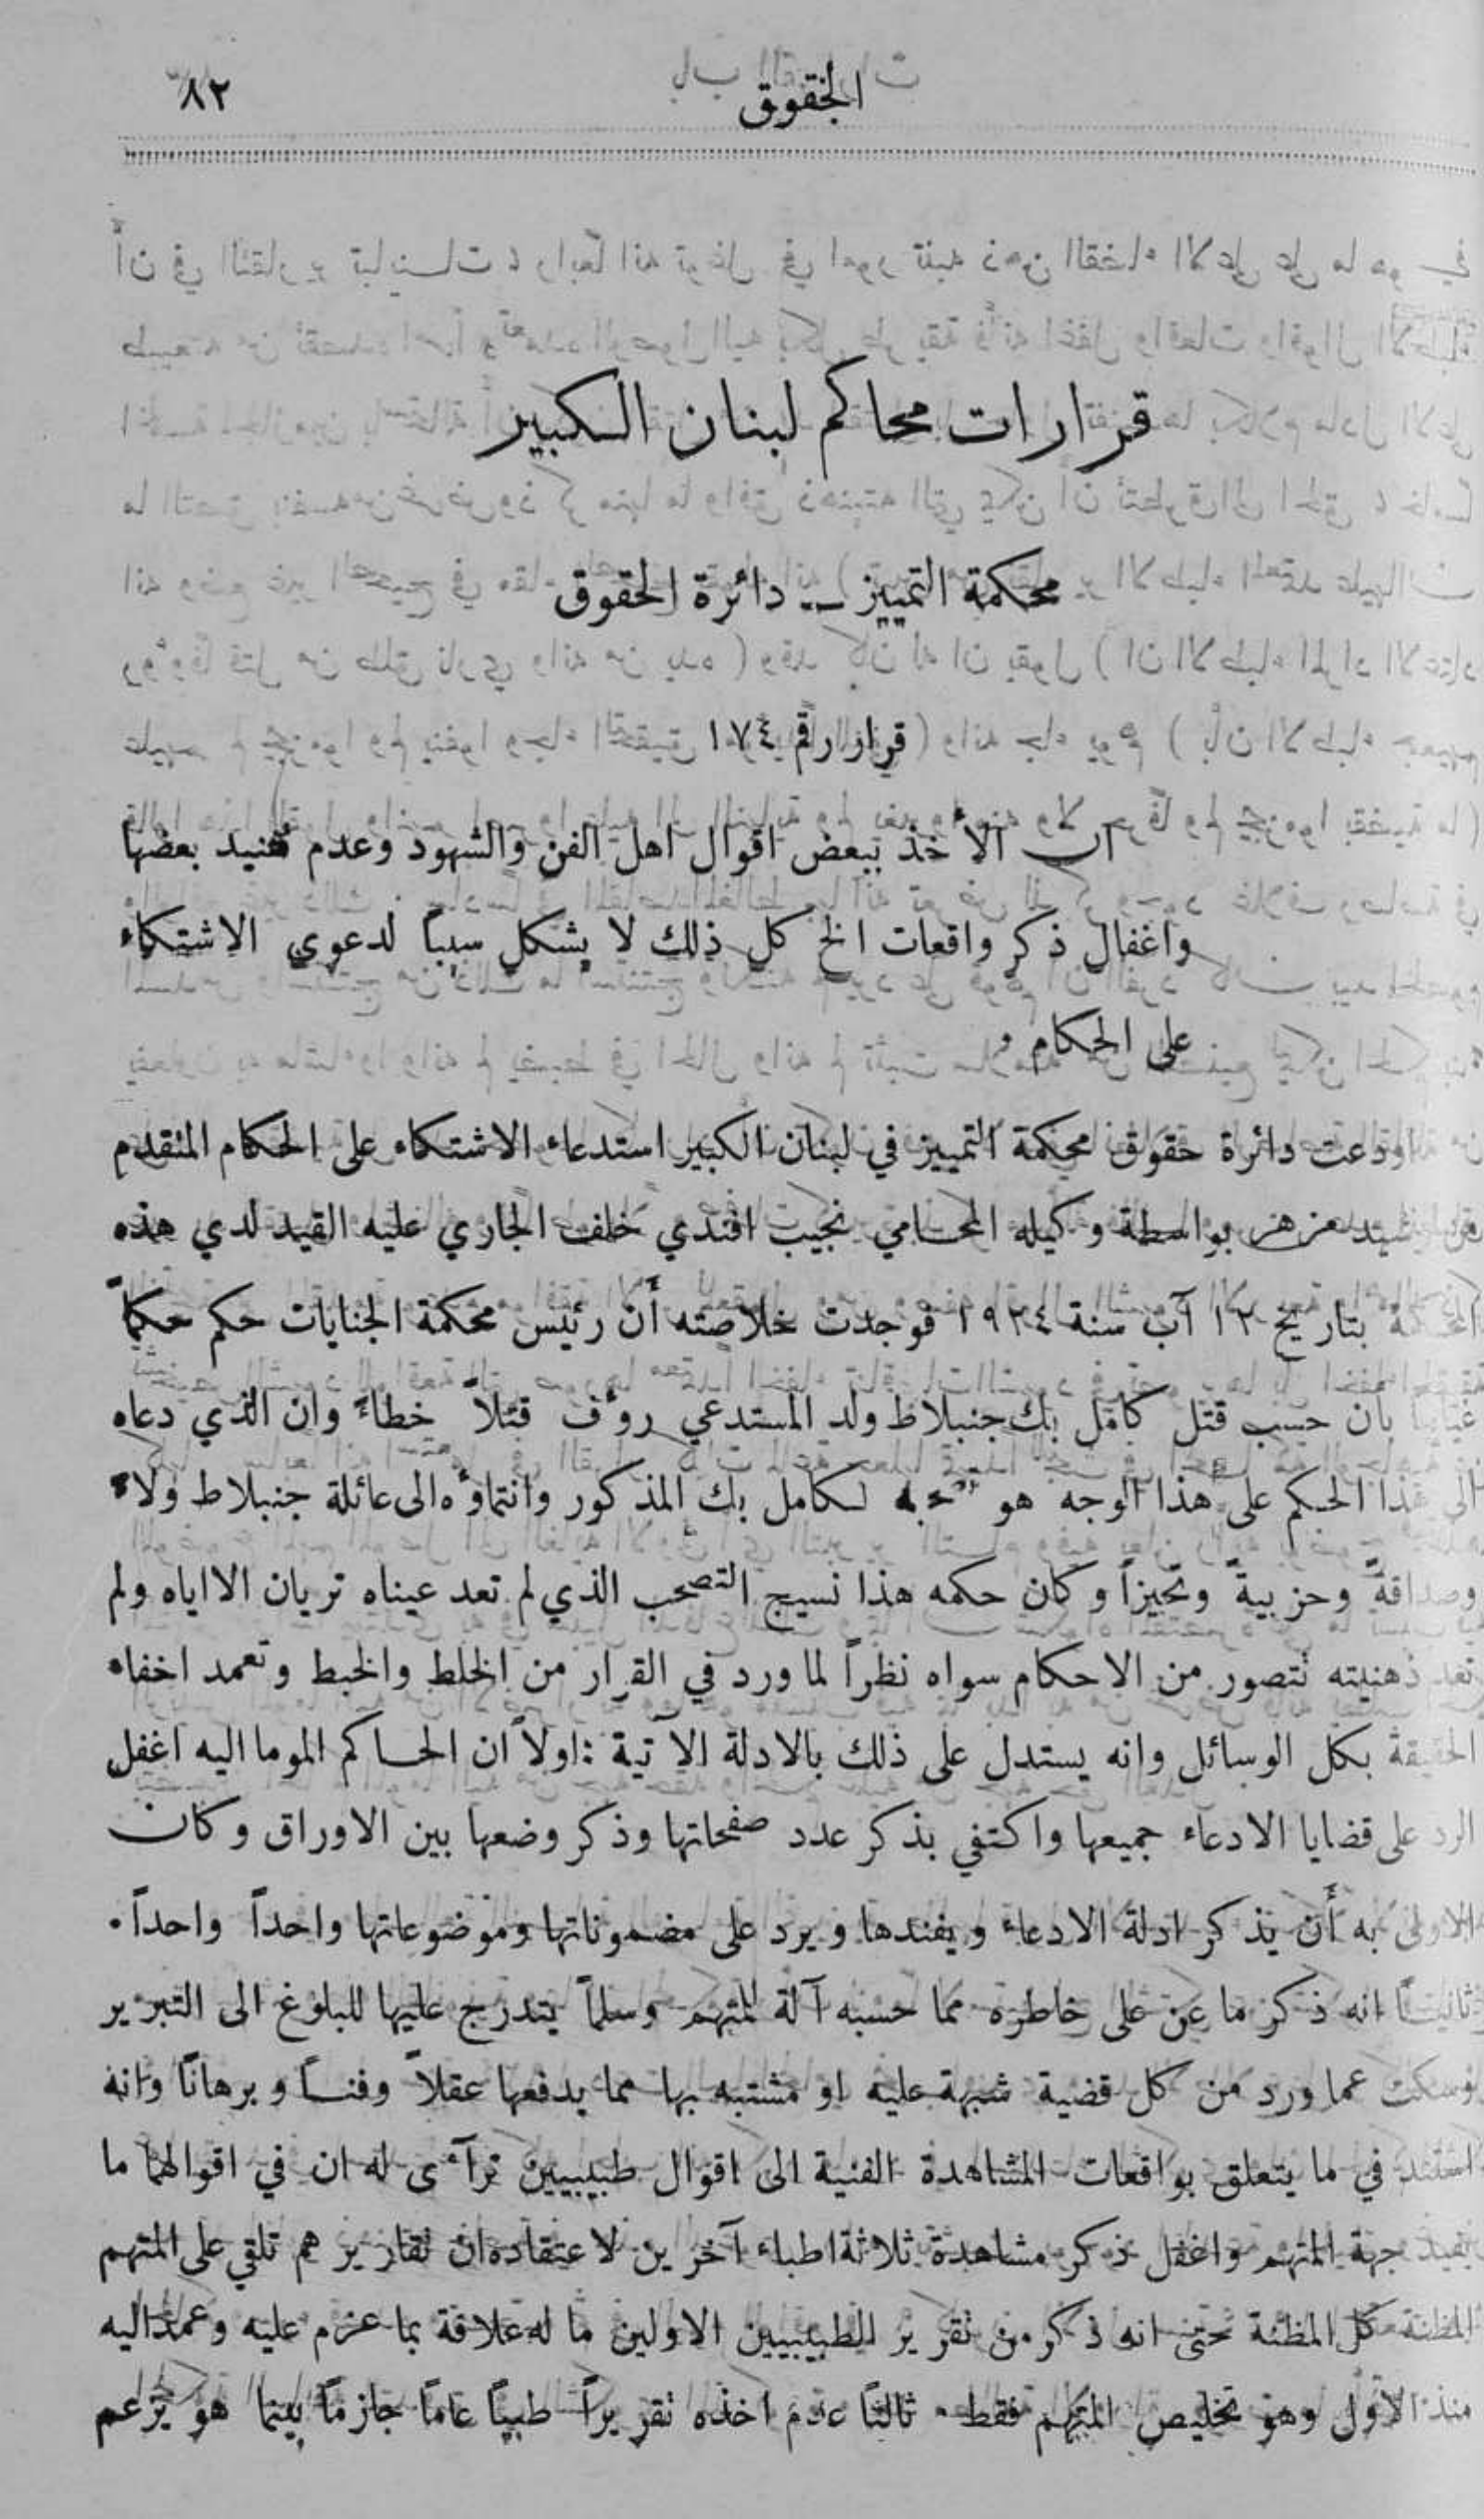 ٨٢
الحقوق
قرارات محاكم لبنان الكبير
محكمة التمييز — دائرة الحقوق
قرار رقم ١٧٤
ان الأخذ ببعض اقوال اهل الفن والشهود وعدم تفنيد بعضها
واغفال ذكر واقعات الخ كل ذلك لا يشكل سبباً لدعوى الاشتكاء
على الحكام .
اودعت دائرة حقوق محكمة التمييز في لبنان الكبير استدعاء الاشتكاء على الحكام المتقدم
رشيد مزهر بواسطة وكيله المحامي نجيب افندي خلف الجاري عليه القيد لدي هذه
المحكمة بتاريخ ١٢ آب سنة ١٩٢٤ فوجدت خلاصته أن رئيس محكمة الجنايات حكم حكماً
غيابياً بأن حسب قتل كامل بك جنبلاط ولد المستدعي رؤف قتلاً خطاءً وان الذي دعاه
الى هذا الحكم على هذا الوجه هو لكامل بك المذكور وانتماؤه الى عائلة جنبلاط ولاءً
وصداقةً وحزبيةً وتحيزاً وكان حكمه هذا نسيج التصحب الذي لم تعد عيناه تريان الا اياه ولم
تعد ذهنيته تتصور من الاحكام سواه نظراً لما ورد في القرار من الخلط والخبط وتعمد اخفاء
الحقيقة بكل الوسائل وانه يستدل على ذلك بالادلة الآتية : اولاً ان الحاكم الموما اليه اغفل
الرد على قضايا الادعاء جميعها واكتفي بذكر عدد صفحاتها وذكر وضعها بين الاوراق وكان
الاولى به أن يذكر ادلة الادعاء ويفندها ويرد على مضموناتها وموضوعاتها واحداً واحداً .
ثانياً انه ذكر ما عن على خاطره مما حسبه آلة للمتهم وسلماً يتدرج عليها للبلوغ الى التبرير
وسكت عما ورد من كل قضية شبهة عليه او مشتبه بها مما يدفعها عقلاً وفناً وبرهاناً وانه
استند في ما يتعلق بواقعات المشاهدة الفنية الى اقوال طبيبيين ترآءى له ان في اقوالهما ما
يفيد جهة المتهم واغفل ذكر مشاهدة ثلاثة اطباء آخرين لاعتقاده ان تقاريرهم تلقي على المتهم
المظنة كل المظنة حتى انه ذكر من تقرير الطبيبيين الاولين ما له علاقة بما عزم عليه وعمد اليه
منذ الاول وهو تخليص المتهم فقط . ثالثاً عدم اخذه تقريراً طبياً عاماً جازماً بينما هو يزعم